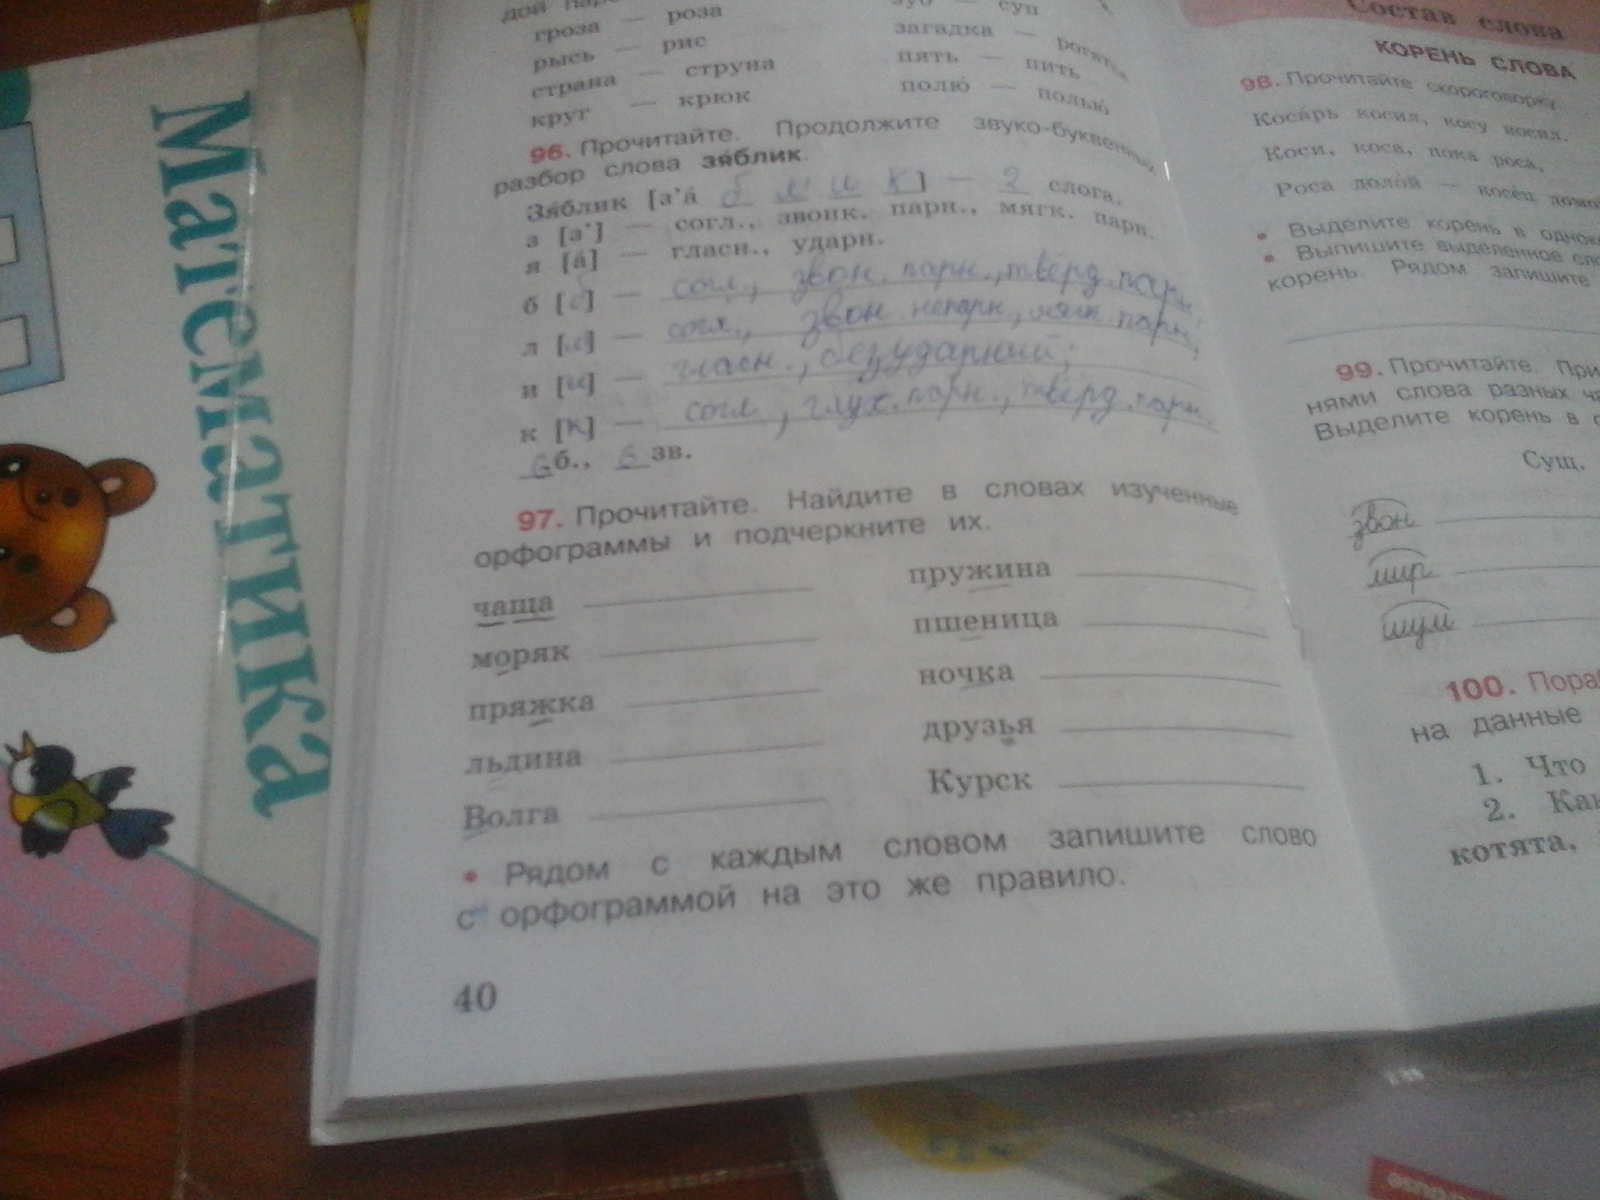 Математика
гроза — роза
рысь — рис
страна — струна
круг — крюк
зуб — суп
загадка —
пять — пить
полю́ — полью́
96. Прочитайте. Продолжите звуко-буквенный
разбор слова зяблик.
Зяблик [з’а́ б л’ и к] — 2 слога.
з [з’] — согл., звонк. парн., мягк. парн.
я [а́] — гласн., ударн.
б [б] — согл., звон. парн., твёрд. парн.
л [л] — согл., звон. непарн., мягк. парн.,
и [и] — гласн., безударный;
к [к] — согл., глух. парн., твёрд. парн.
6 б., 6 зв.
97. Прочитайте. Найдите в словах изученные
орфограммы и подчеркните их.
чаща
моряк
пряжка
льдина
Волга
пружина
пшеница
ночка
друзья
Курск
• Рядом с каждым словом запишите слово
с орфограммой на это же правило.
40
Состав слова
КОРЕНЬ СЛОВА
98. Прочитайте скороговорку.
Коса́рь косил, косу носил.
Коси, коса, пока роса,
Роса доло́й — косе́ц
• Выделите корень в
• Выпишите выделенное
корень. Рядом запишите
99. Прочитайте.
нями слова разных
Выделите корень в
Сущ.
звон
мир
шум
100.
на данные
1. Что
2.
котята,